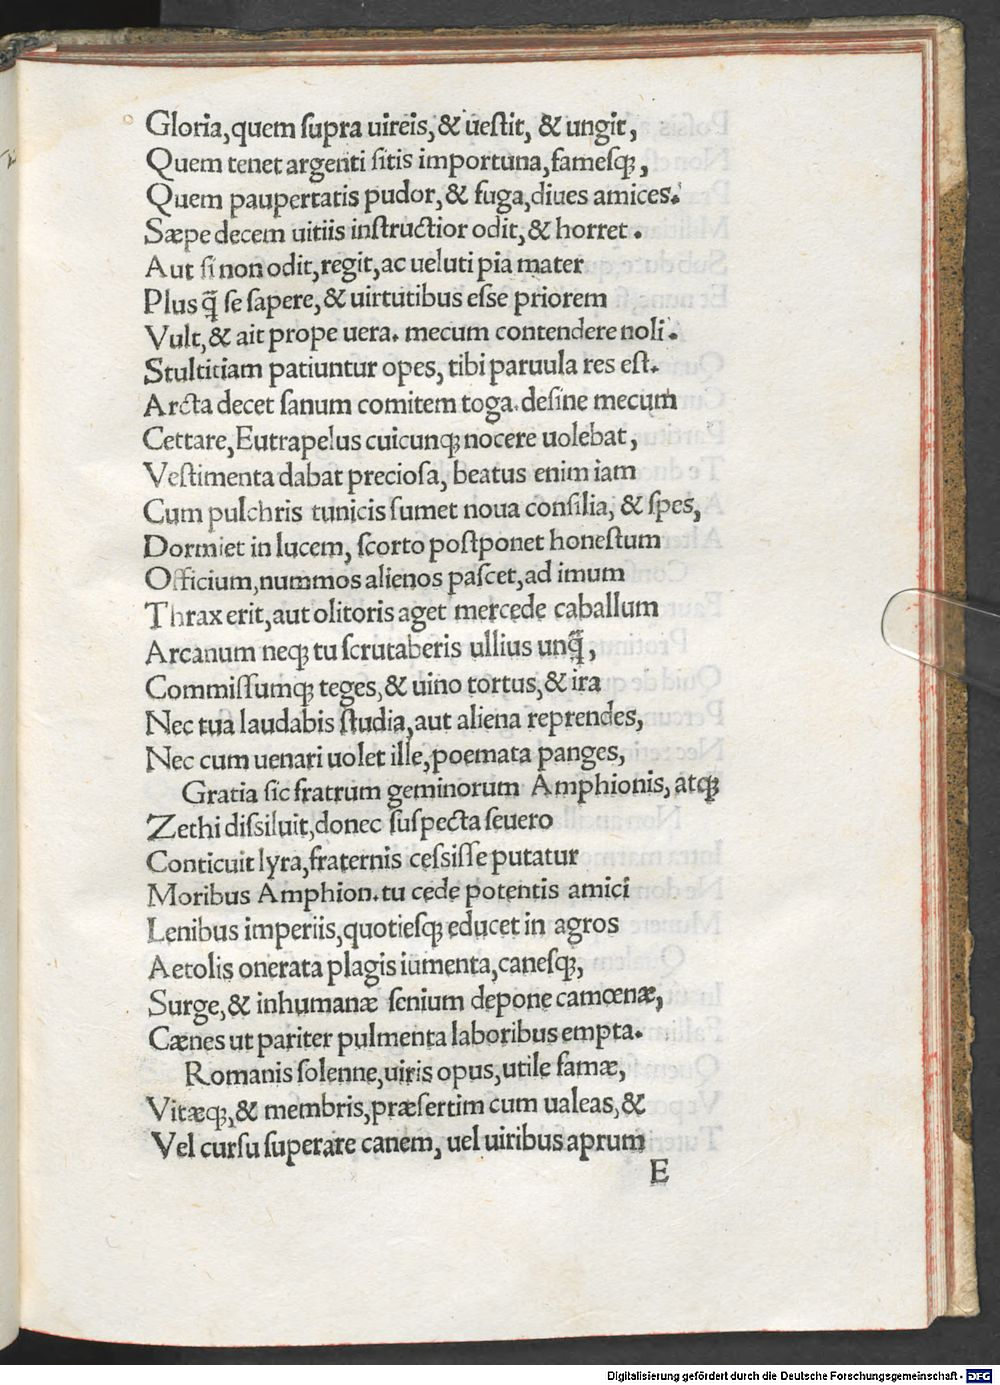 Gloria, quem ſupra uireis, & ueſtit, & ungit,
Quem tenet argenti ſitis importuna, fameſqꝫ,
Quem paupertatis pudor, & fuga, diues amices.
Sæpe decem uitiis inſtructior odit, & horret.
Aut ſi non odit, regit, ac ueluti pia mater
Plus q̃ ſe ſapere, & uirtutibus eſſe priorem
Vult, & ait prope uera. mecum contendere noli.
Stultitiam patiuntur opes, tibi paruula res eſt.
Arcta decet ſanum comitem toga. deſine mecum
Cettare, Eutrapelus cuicunqꝫ nocere uolebat,
Veſtimenta dabat precioſa, beatus enim iam
Cum pulchris tunicis ſumet noua conſilia, & ſpes,
Dormiet in lucem, ſcorto poſtponet honeſtum
Officium, nummos alienos paſcet, ad imum
Thrax erit, aut olitoris aget mercede caballum
Arcanum neqꝫ tu ſcrutaberis ullius unq̃,
Commiſſumqꝫ teges, & uino tortus, & ira
Nec tua laudabis ſtudia, aut aliena reprendes,
Nec cum uenari uolet ille, poemata panges,
Gratia ſic fratrum geminorum Amphionis, atqꝫ
Zethi diſſiluit, donec ſuſpecta ſeuero
Conticuit lyra, fraternis ceſſiſſe putatur
Moribus Amphion. tu cede potentis amici
Lenibus imperiis, quotieſqꝫ educet in agros
Aetolis onerata plagis iumenta, caneſqꝫ,
Surge, & inhumanæ ſenium depone camœnæ,
Cænes ut pariter pulmenta laboribus empta.
Romanis ſolenne, uiris opus, utile famæ,
Vitæqꝫ, & membris, præſertim cum ualeas, &
Vel curſu ſuperare canem, uel uiribus aprum
E
Digitalisierung gefördert durch die Deutsche Forschungsgemeinschaft - DFG